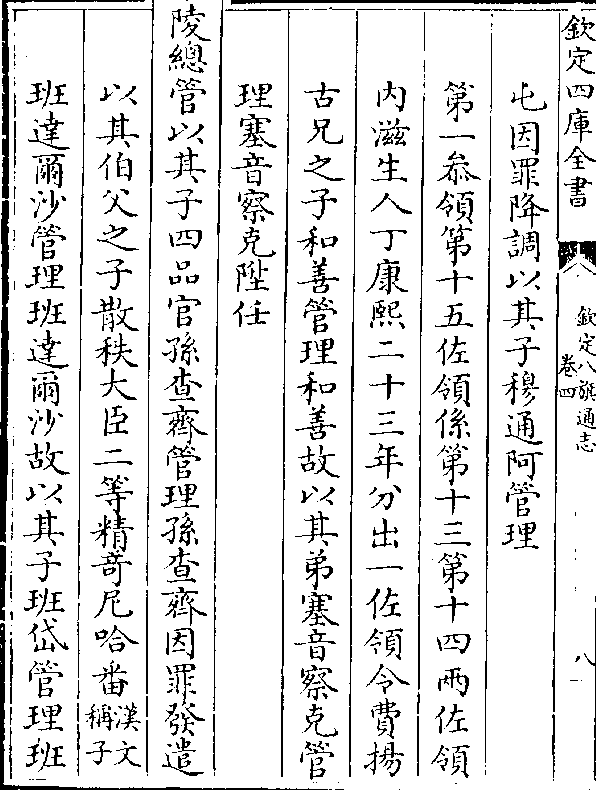 欽定四庫全書
欽定八旗通志
卷四
八
屯因罪降調以其子穆通阿管理
第一叅領第十五佐領係第十三第十四兩佐領
内滋生人丁康熙二十三年分出一佐領令費揚
古兄之子和善管理和善故以其弟塞音察克管
理塞音察克陞任
陵總管以其子四品官孫查齊管理孫查齊因罪發遣
以其伯父之子散秩大臣二等精竒尼哈番漢文稱子
班達爾沙管理班達爾沙故以其子班岱管理班